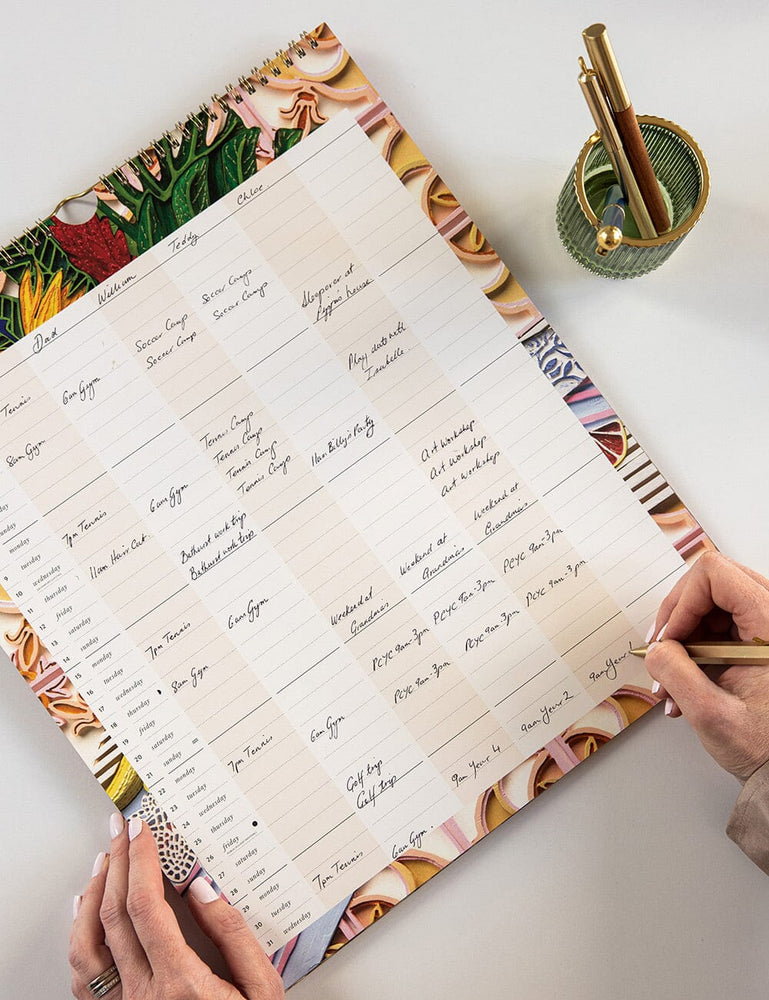 Dad
William
Teddy
Chloe
Tennis
8am Gym
7pm Tennis
11am Hair Cut
7pm Tennis
8am Gym
7pm Tennis
7pm Tennis
6am Gym
6am Gym
Bathurst work trip
Bathurst work trip
6am Gym
6am Gym
Golf trip
Golf trip
6am Gym
Soccer Camp
Soccer Camp
Tennis Camp
Tennis Camp
Tennis Camp
Tennis Camp
Weekend at
Grandmas
PCYC 9am-3pm
PCYC 9am-3pm
9am Year 4
Soccer Camp
Soccer Camp
11am Billy's Party
Weekend at
Grandmas
PCYC 9am-3pm
PCYC 9am-3pm
9am Year 2
Sleepover at
Pippa's house
Play date with
Isabelle
Art Workshop
Art Workshop
Art Workshop
Weekend at
Grandmas
PCYC 9am-3pm
PCYC 9am-3pm
9am Year
sunday
monday
9 tuesday
10 wednesday
11 thursday
12 friday
13 saturday
14 sunday
15 monday
16 tuesday
17 wednesday
18 thursday
19 friday
20 saturday
21 sunday
22 monday
23 tuesday
24 wednesday
25 thursday
26 friday
27 saturday
28 sunday
29 monday
30 tuesday
31 wednesday